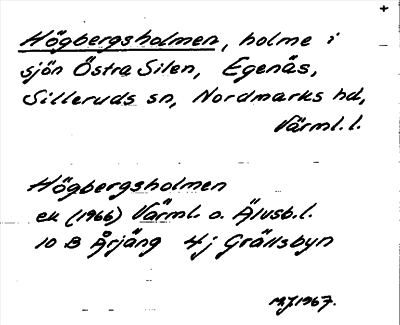 +
Högbergsholmen, holme i
sjön Östra Silen, Egenäs,
Silleruds sn, Nordmarks hd,
Värml. l.
Högbergsholmen
ek (1966) Värml. o. Älvsb. l.
10 B Årjäng 4j Gräsbyn
M.J. 1967.